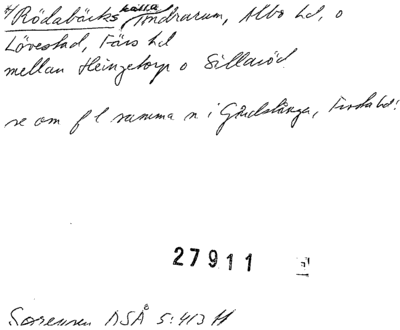 Rödabäcks källa Andrarum, Albo hd, o
Lövestad, Färs hd
mellan Heingetorp o Sillaröd
se om f l samma n i Gödelövga, Torda hd:
27911
Sorensen DSÅ 5:413 ff